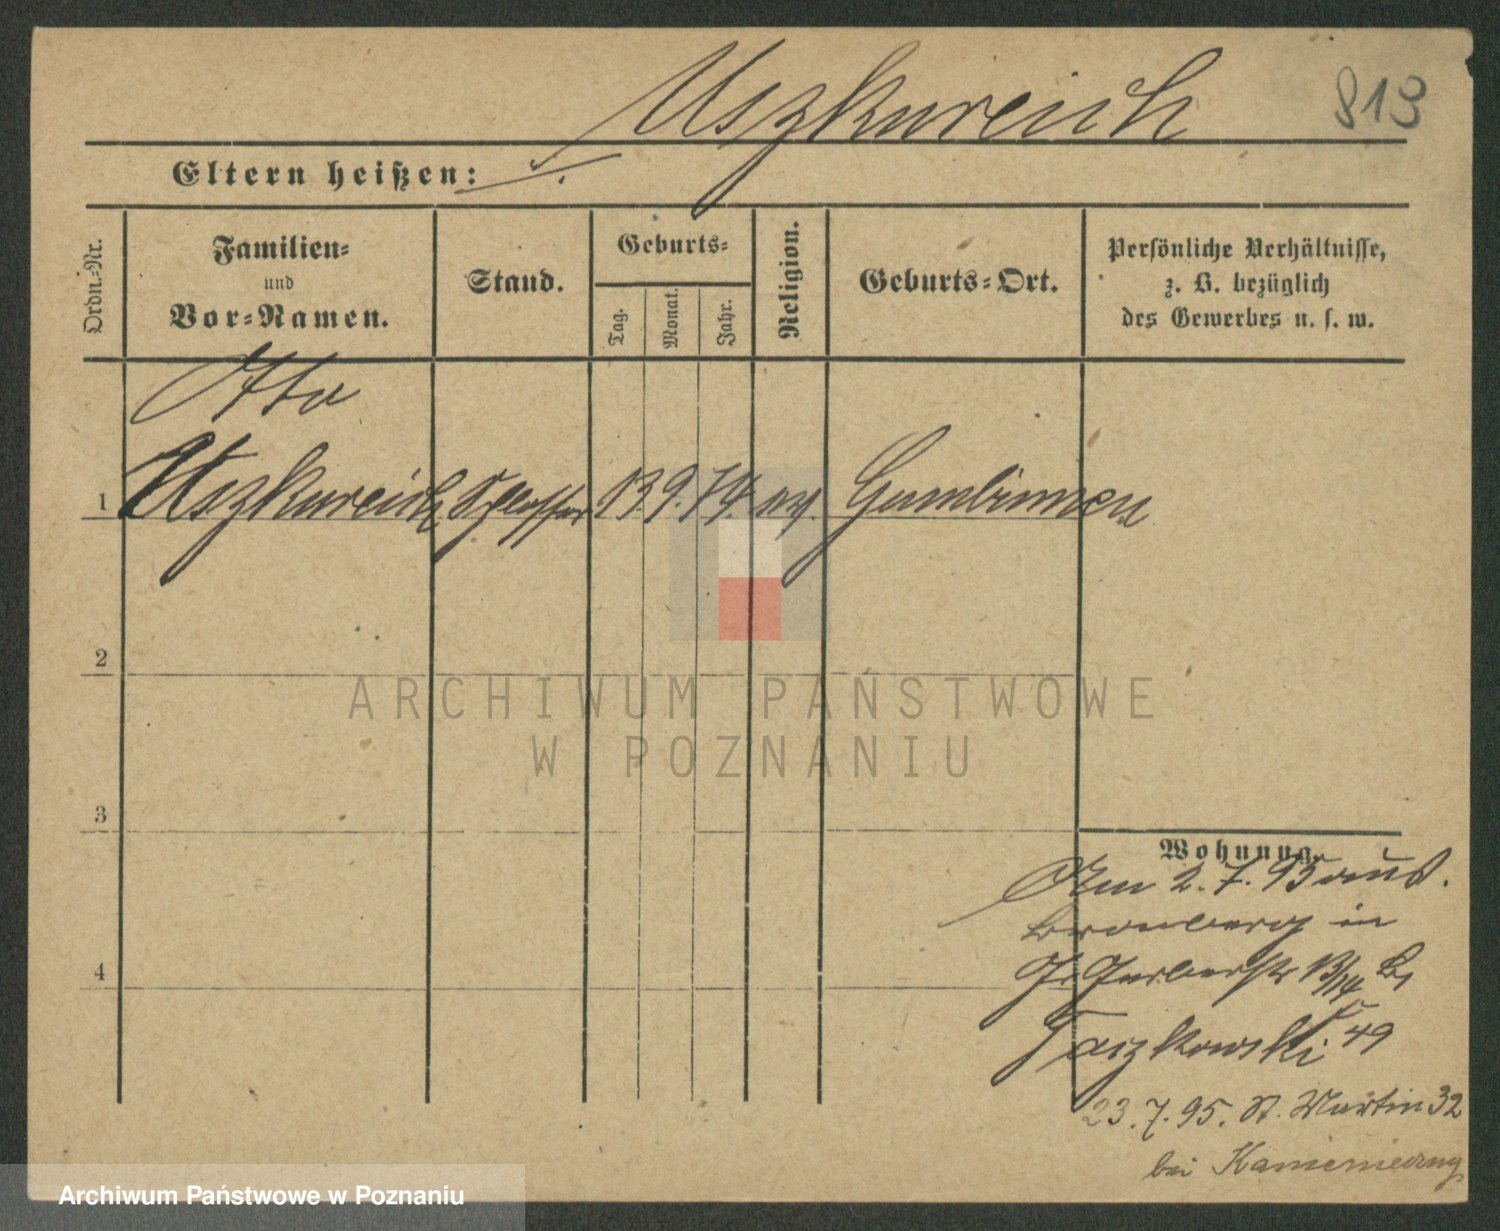 Uszkureich
813
Eltern heißen:
Ordn.-Nr.
Familien-
und
Vor-Namen.
Stand.
Geburts-
Tag.
Monat.
Jahr.
Religion.
Geburts-Ort.
Persönliche Verhältnisse,
z. B. bezüglich
des Gewerbes u. s. w.
Otto
1 Uszkureich Schlosser 13. 9. 74. ev. Gumbinnen
2
ARCHIWUM PAŃSTWOWE
W POZNANIU
3
Wohnung.
Am 2. 7. 95 aus
Bromberg in
Gr. Gerberstr 13/14 b/
Taszkowski 49
4
23. 7. 95. St. Martin 32
bei
Archiwum Państwowe w Poznaniu